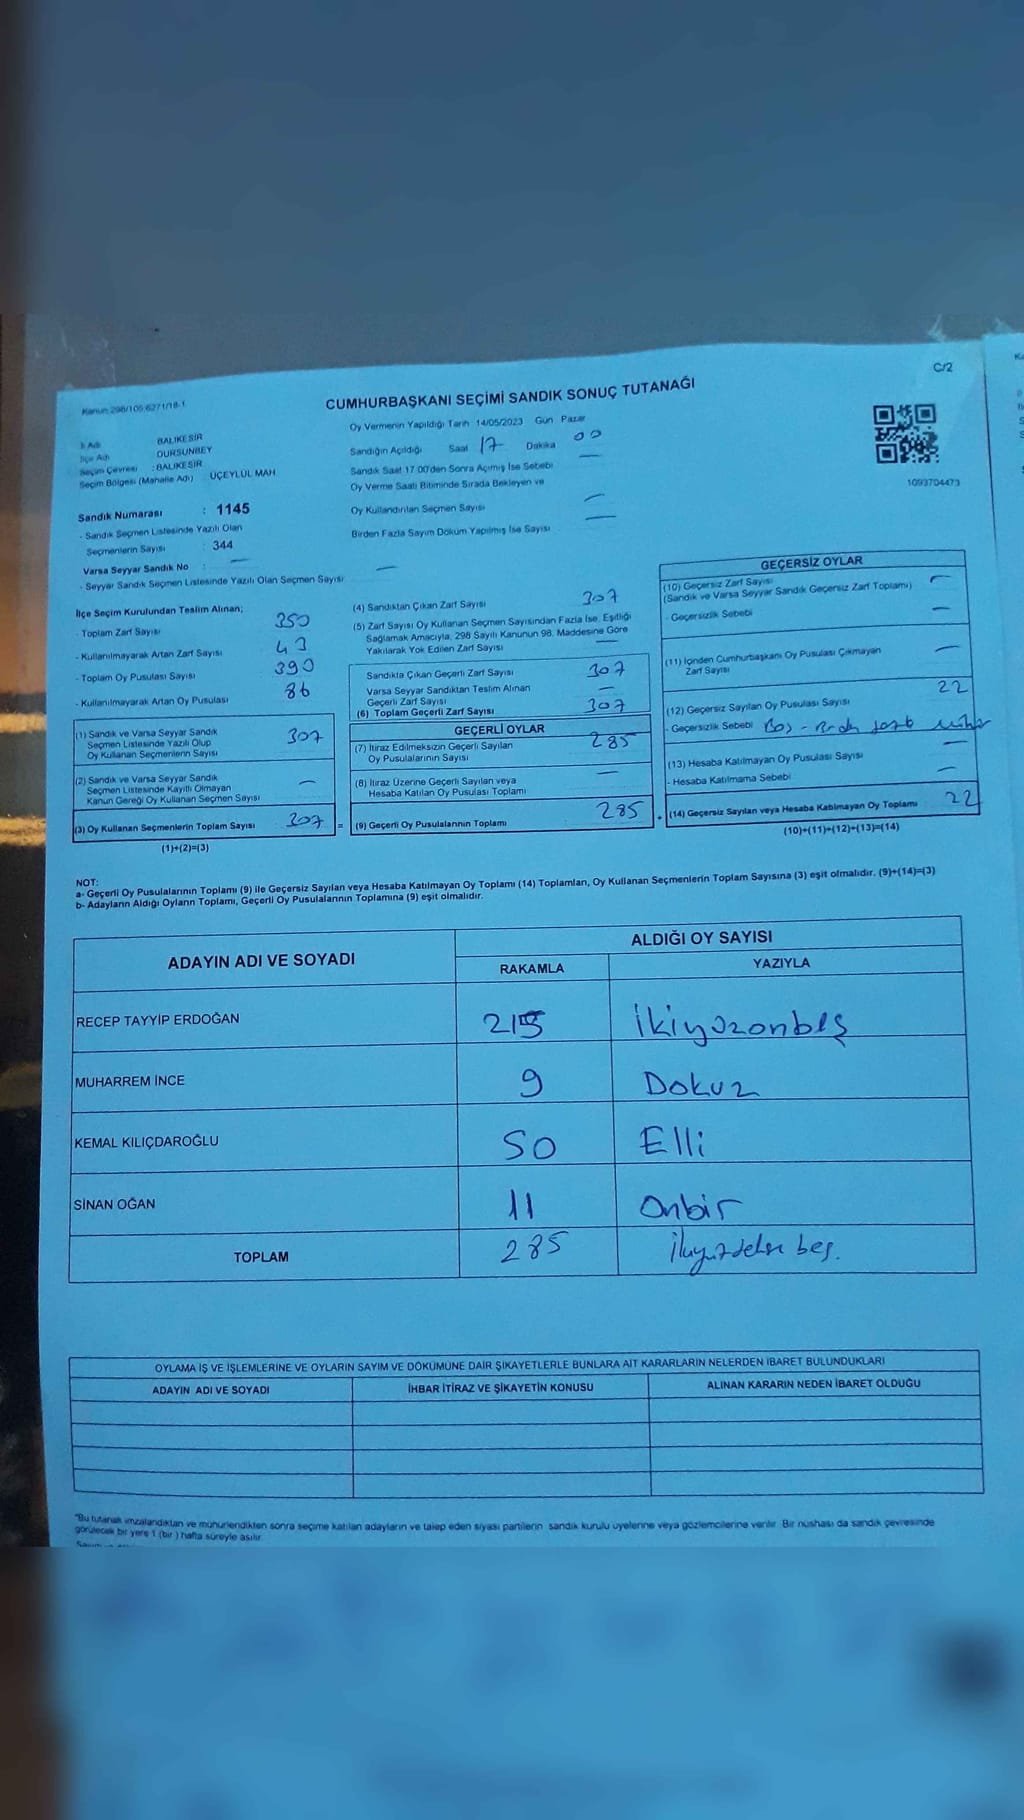 C/2
Kanun:298/105;6271/18-1
CUMHURBAŞKANI SEÇİMİ SANDIK SONUÇ TUTANAĞI
İl Adı : BALIKESİR
İlçe Adı : DURSUNBEY
Seçim Çevresi : BALIKESİR
Seçim Bölgesi (Mahalle Adı) : ÜÇEYLÜL MAH
Sandık Numarası : 1145
- Sandık Seçmen Listesinde Yazılı Olan
Seçmenlerin Sayısı : 344
Varsa Seyyar Sandık No : —
- Seyyar Sandık Seçmen Listesinde Yazılı Olan Seçmen Sayısı: —
Oy Vermenin Yapıldığı Tarih 14/05/2023 Gün Pazar
Sandığın Açıldığı Saat 17 Dakika 00
Sandık Saat 17.00'den Sonra Açılmış İse Sebebi —
Oy Verme Saati Bitiminde Sırada Bekleyen ve
Oy Kullandırılan Seçmen Sayısı —
Birden Fazla Sayım Döküm Yapılmış İse Sayısı —
1093704473
İlçe Seçim Kurulundan Teslim Alınan;
- Toplam Zarf Sayısı 350
- Kullanılmayarak Artan Zarf Sayısı 43
- Toplam Oy Pusulası Sayısı 390
- Kullanılmayarak Artan Oy Pusulası 86
(1) Sandık ve Varsa Seyyar Sandık
Seçmen Listesinde Yazılı Olup
Oy Kullanan Seçmenlerin Sayısı 307
(2) Sandık ve Varsa Seyyar Sandık
Seçmen Listesinde Kayıtlı Olmayan
Kanun Gereği Oy Kullanan Seçmen Sayısı —
(3) Oy Kullanan Seçmenlerin Toplam Sayısı 307 =
(1)+(2)=(3)
(4) Sandıktan Çıkan Zarf Sayısı 307
(5) Zarf Sayısı Oy Kullanan Seçmen Sayısından Fazla İse, Eşitliği
Sağlamak Amacıyla, 298 Sayılı Kanunun 98. Maddesine Göre
Yakılarak Yok Edilen Zarf Sayısı —
Sandıkta Çıkan Geçerli Zarf Sayısı 307
Varsa Seyyar Sandıktan Teslim Alınan
Geçerli Zarf Sayısı —
(6) Toplam Geçerli Zarf Sayısı 307
GEÇERLİ OYLAR
(7) İtiraz Edilmeksizin Geçerli Sayılan
Oy Pusulalarının Sayısı 285
(8) İtiraz Üzerine Geçerli Sayılan veya
Hesaba Katılan Oy Pusulası Toplamı —
(9) Geçerli Oy Pusulalarının Toplamı 285 +
GEÇERSİZ OYLAR
(10) Geçersiz Zarf Sayısı —
(Sandık ve Varsa Seyyar Sandık Geçersiz Zarf Toplamı)
- Geçersizlik Sebebi —
(11) İçinden Cumhurbaşkanı Oy Pusulası Çıkmayan
Zarf Sayısı —
(12) Geçersiz Sayılan Oy Pusulası Sayısı 22
- Geçersizlik Sebebi Boş - mühür
(13) Hesaba Katılmayan Oy Pusulası Sayısı —
- Hesaba Katılmama Sebebi —
(14) Geçersiz Sayılan veya Hesaba Katılmayan Oy Toplamı 22
(10)+(11)+(12)+(13)=(14)
NOT:
a- Geçerli Oy Pusulalarının Toplamı (9) ile Geçersiz Sayılan veya Hesaba Katılmayan Oy Toplamı (14) Toplamları, Oy Kullanan Seçmenlerin Toplam Sayısına (3) eşit olmalıdır. (9)+(14)=(3)
b- Adayların Aldığı Oyların Toplamı, Geçerli Oy Pusulalarının Toplamına (9) eşit olmalıdır.
ADAYIN ADI VE SOYADI
ALDIĞI OY SAYISI
RAKAMLA YAZIYLA
RECEP TAYYİP ERDOĞAN 215 ikiyüzonbeş
MUHARREM İNCE 9 Dokuz
KEMAL KILIÇDAROĞLU 50 Elli
SİNAN OĞAN 11 Onbir
TOPLAM 285 ikiyüzseksen beş.
OYLAMA İŞ VE İŞLEMLERİNE VE OYLARIN SAYIM VE DÖKÜMÜNE DAİR ŞİKAYETLERLE BUNLARA AİT KARARLARIN NELERDEN İBARET BULUNDUKLARI
ADAYIN ADI VE SOYADI İHBAR İTİRAZ VE ŞİKAYETİN KONUSU ALINAN KARARIN NEDEN İBARET OLDUĞU
"Bu tutanak imzalandıktan ve mühürlendikten sonra seçime katılan adayların ve talep eden siyasi partilerin sandık kurulu üyelerine veya gözlemcilerine verilir. Bir nüshası da sandık çevresinde
görülecek bir yere 1 (bir ) hafta süreyle asılır.